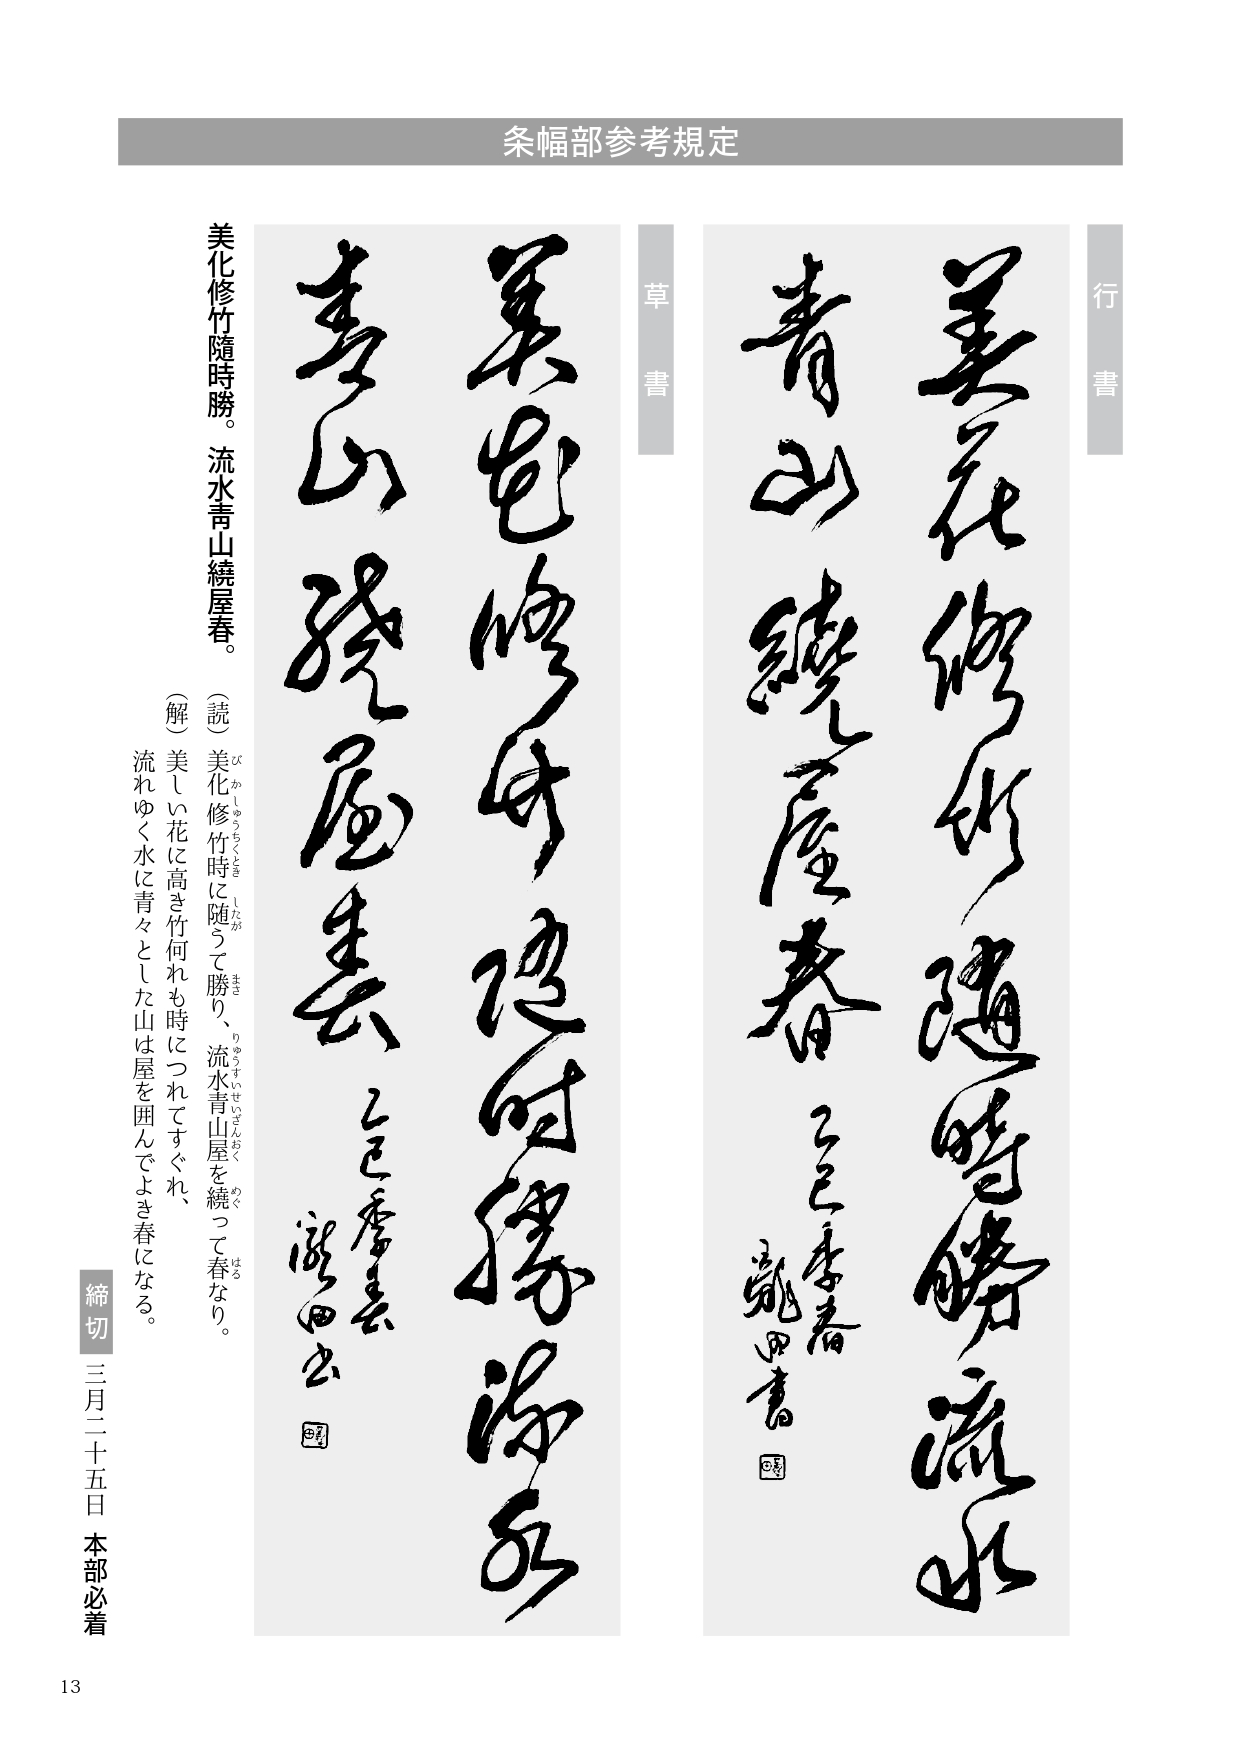 条幅部参考規定
行書
美花修竹随時勝流水
青山繞屋春
乙巳季春
瀧田書
草書
美花修竹随時勝流水
青山繞屋春
乙巳季春
瀧田書
美化修竹隨時勝。流水靑山繞屋春。
（読）美化修竹時に随うて勝り、流水青山屋を繞って春なり。
びかしゅうちくとき したが まさ りゅうすいせいざんおく めぐ はる
（解）美しい花に高き竹何れも時につれてすぐれ、
流れゆく水に青々とした山は屋を囲んでよき春になる。
締切 三月二十五日 本部必着
13